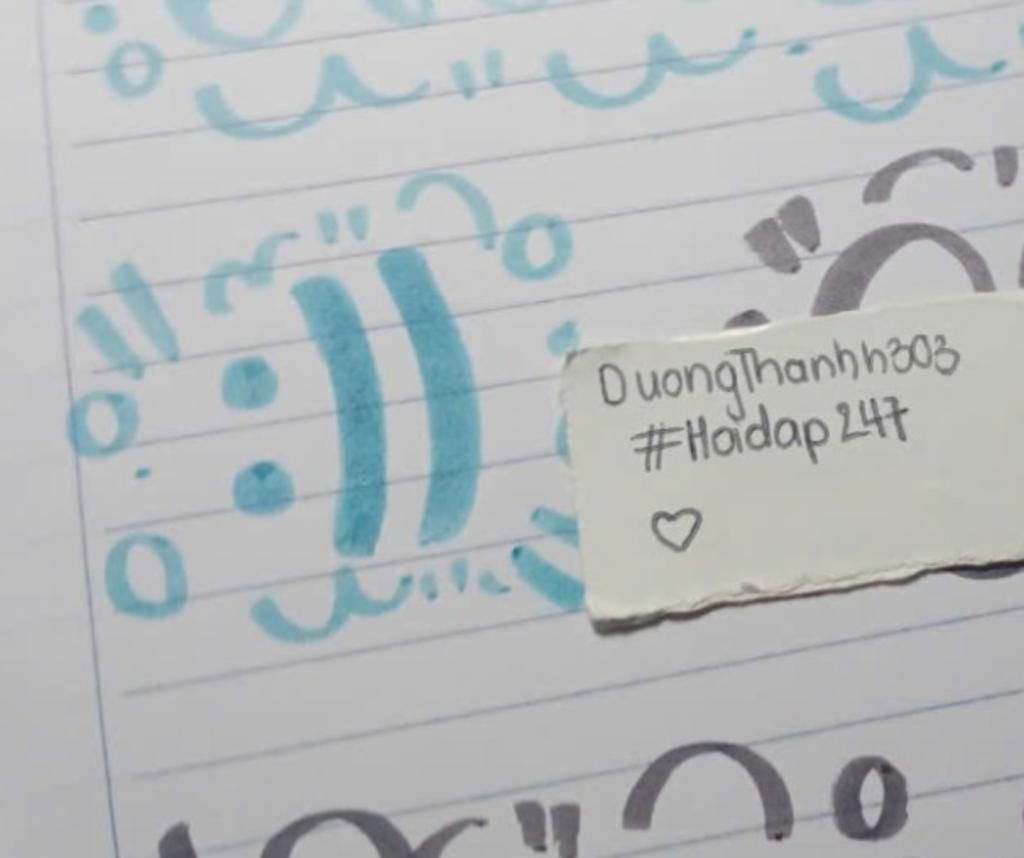 :))
DuongThanhh303
#Hoidap247
♡